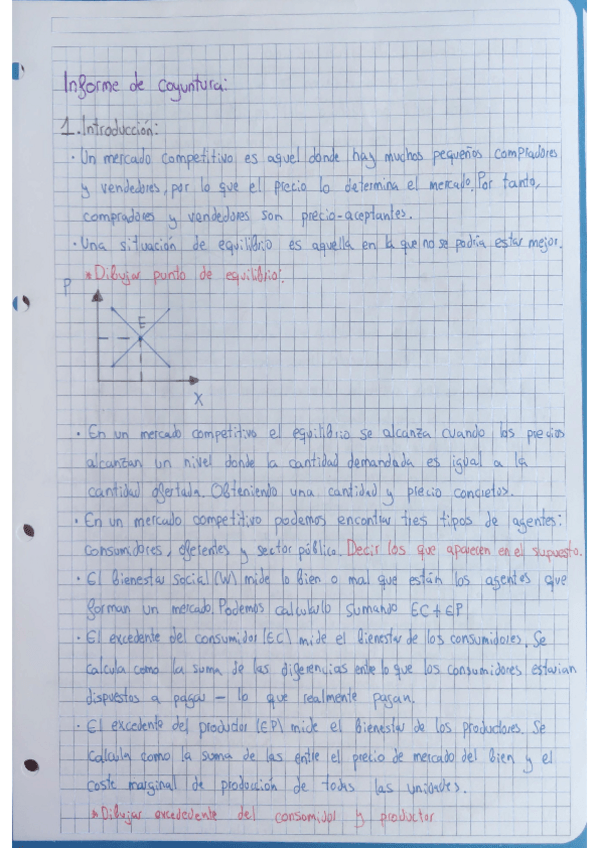 Informe de coyuntura:
1. Introducción:
· Un mercado competitivo es aquel donde hay muchos pequeños compradores
y vendedores, por lo que el precio lo determina el mercado. Por tanto,
compradores y vendedores son precio-aceptantes.
· Una situación de equilibrio es aquella en la que no se podría estar mejor.
* Dibujar punto de equilibrio!
P
E
X
· En un mercado competitivo el equilibrio se alcanza cuando los precios
alcanzan un nivel donde la cantidad demandada es igual a la
cantidad ofertada. Obteniendo una cantidad y precio concretos.
· En un mercado competitivo podemos encontrar tres tipos de agentes:
consumidores, oferentes y sector público. Decir los que aparecen en el supuesto.
· El Bienestar Social (W) mide lo bien o mal que están los agentes que
forman un mercado. Podemos calcularlo sumando EC + EP
· El excedente del consumidor (EC) mide el bienestar de los consumidores. Se
calcula como la suma de las diferencias entre lo que los consumidores estarían
dispuestos a pagar – lo que realmente pagan.
· El excedente del productor (EP) mide el bienestar de los productores. Se
calcula como la suma de las entre el precio de mercado del bien y el
coste marginal de producción de todas las unidades.
* Dibujar excedente del consumidor y productor